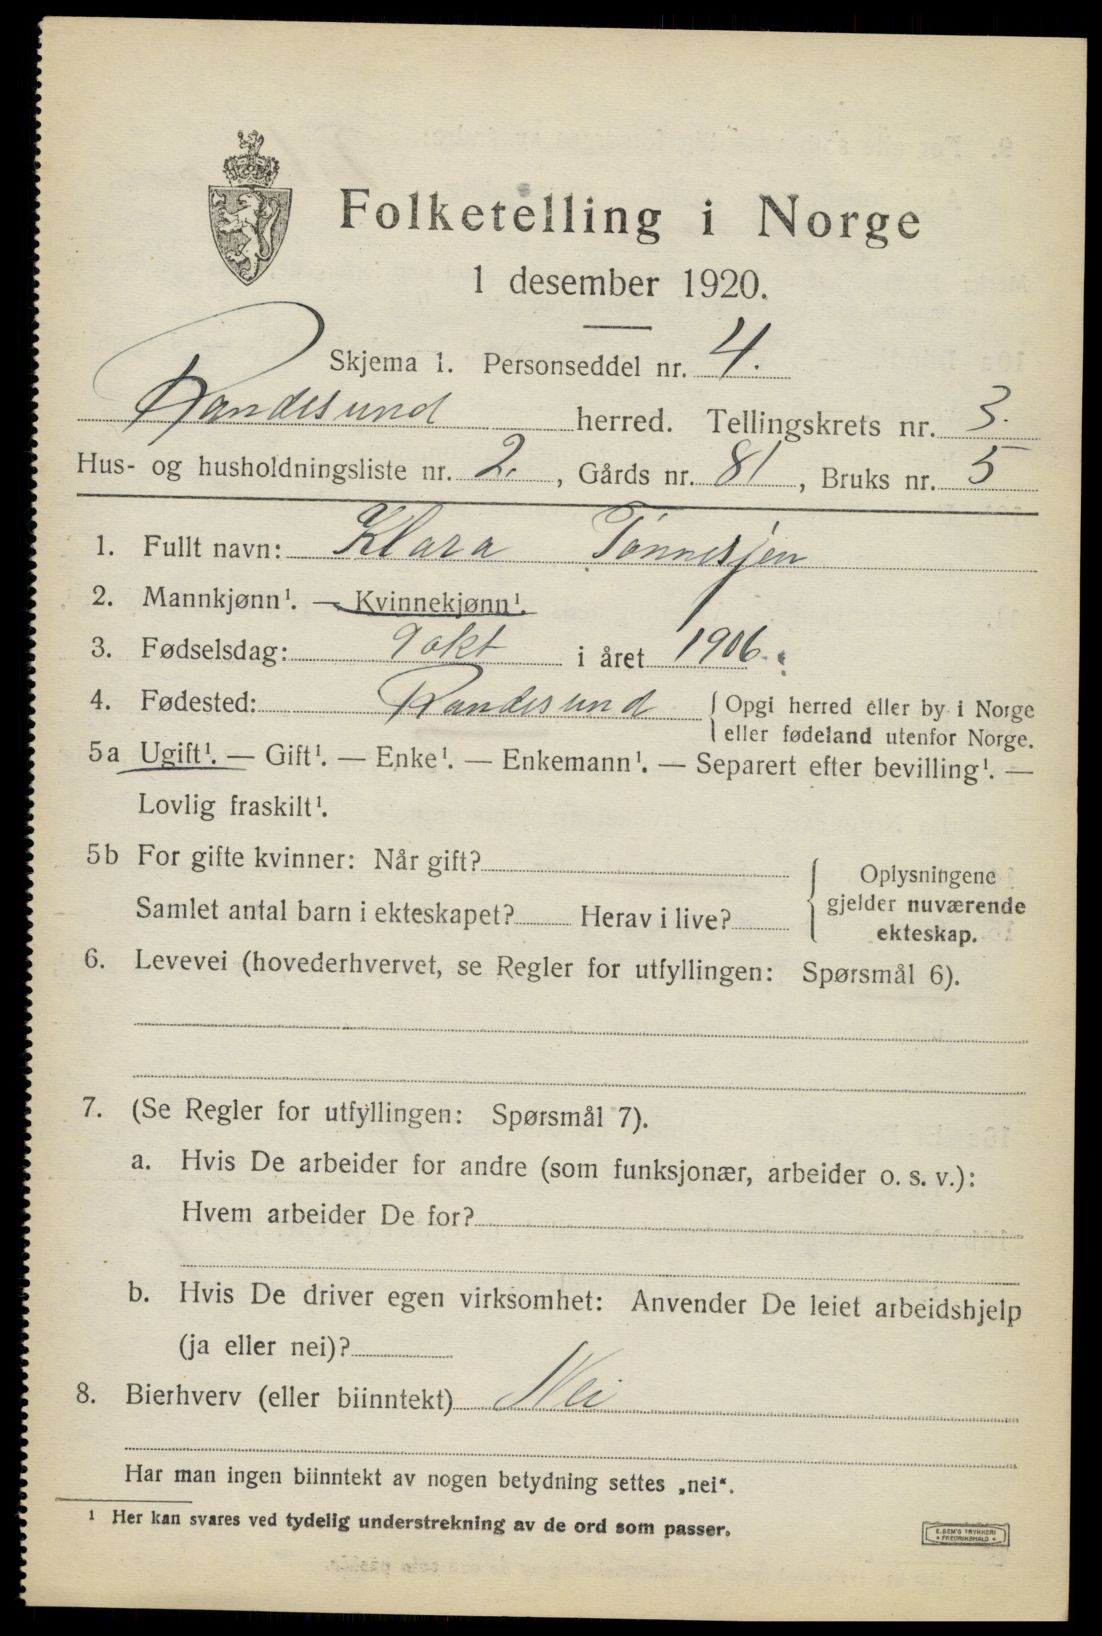 Folketelling i Norge
1 desember 1920.
Skjema 1. Personseddel nr. 4.
Randesund herred. Tellingskrets nr. 3.
Hus- og husholdningsliste nr. 2. , Gårds nr. 81 , Bruks nr. 5
1. Fullt navn: Klara Tønnesjen
2. Mannkjønn¹. — Kvinnekjønn¹.
3. Fødselsdag: 9 okt i året 1906.
4. Fødested: Randesund { Opgi herred eller by i Norge
eller fødeland utenfor Norge.
5a Ugift¹. — Gift¹. — Enke¹. — Enkemann¹. — Separert efter bevilling¹. —
Lovlig fraskilt¹.
5b For gifte kvinner: Når gift?
Samlet antal barn i ekteskapet? Herav i live?
{ Oplysningene
gjelder nuværende
ekteskap.
6. Levevei (hovederhvervet, se Regler for utfyllingen: Spørsmål 6).
7. (Se Regler for utfyllingen: Spørsmål 7).
a. Hvis De arbeider for andre (som funksjonær, arbeider o. s. v.):
Hvem arbeider De for?
b. Hvis De driver egen virksomhet: Anvender De leiet arbeidshjelp
(ja eller nei)?
8. Bierhverv (eller biinntekt) Nei
Har man ingen biinntekt av nogen betydning settes „nei“.
¹ Her kan svares ved tydelig understrekning av de ord som passer.
E. SEM'S TRYKKERI
• FREDRIKSHALD •